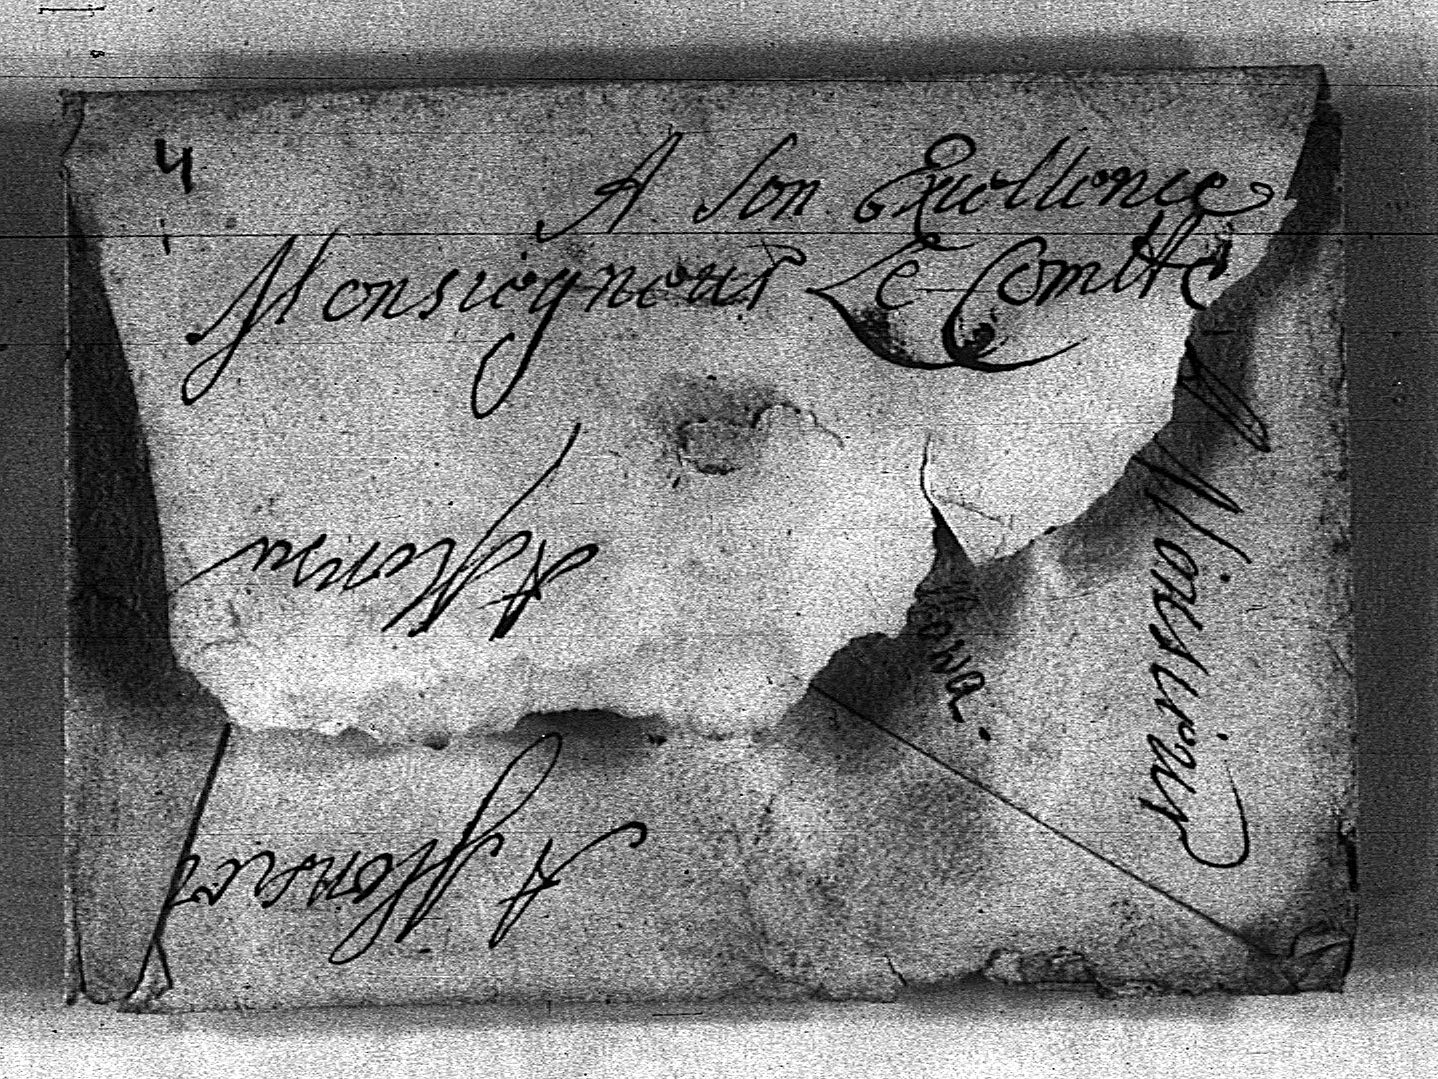 4
A Son Excellence
Monseigneur Le Comte
A Monsu
A Monsieur
A Monsieu